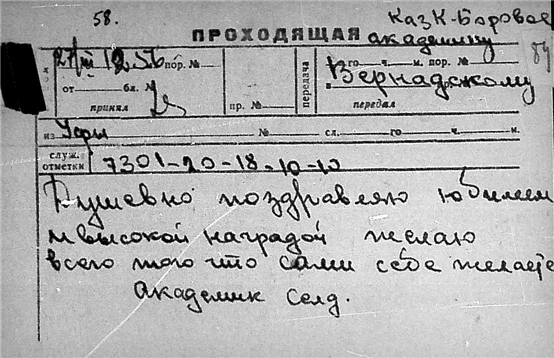 58.
КазК-Боровое
ПРОХОДЯЩАЯ академику
84
12 56 пор. № го ч. м. пор. №
Вернадскому
от бл. №
принял пр. № передача передал
из Уфы № сл. го ч. м.
служ. отметки 7301-20-18-10-10
Душевно поздравляю юбилеем
и высокой наградой желаю
всего того что сами себе желаете
Академик Солд.